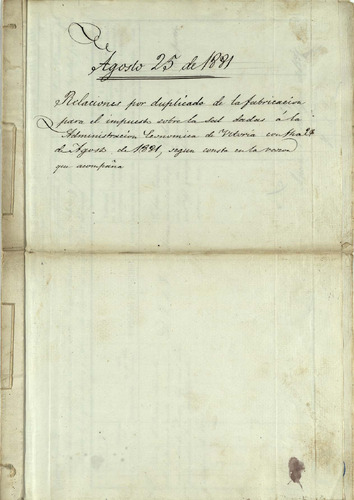 De
Agosto 25 de 1881
Relaciones por duplicado de la fabricacion
para el impuesto sobre la sal dadas á la
Administracion Economica de Vitoria con fha 25
de Agosto de 1881, segun consta en la
que acompaña